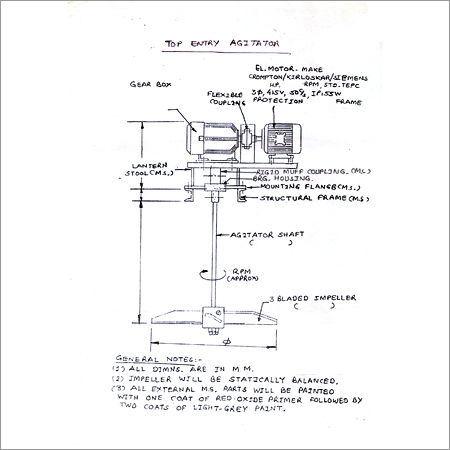 TOP ENTRY AGITATOR
EL. MOTOR - MAKE
CROMPTON/KIRLOSKAR/SIEMENS
H.P. RPM, STD. TEFC
3Ø, 415V, 50~, IP:55W
PROTECTION FRAME
GEAR BOX
FLEXIBLE
COUPLING
LANTERN
STOOL (M.S.)
RIGID MUFF COUPLING. (M.S.)
BRG. HOUSING.
MOUNTING FLANGE (M.S.)
STRUCTURAL FRAME (M.S)
AGITATOR SHAFT
( )
RPM
(APPROX)
3 BLADED IMPELLER
( )
Ø
GENERAL NOTES:-
(1) ALL DIMNS. ARE IN M.M.
(2) IMPELLER WILL BE STATICALLY BALANCED.
(3) ALL EXTERNAL M.S. PARTS WILL BE PAINTED
WITH ONE COAT OF RED OXIDE PRIMER FOLLOWED BY
TWO COATS OF LIGHT-GREY PAINT.